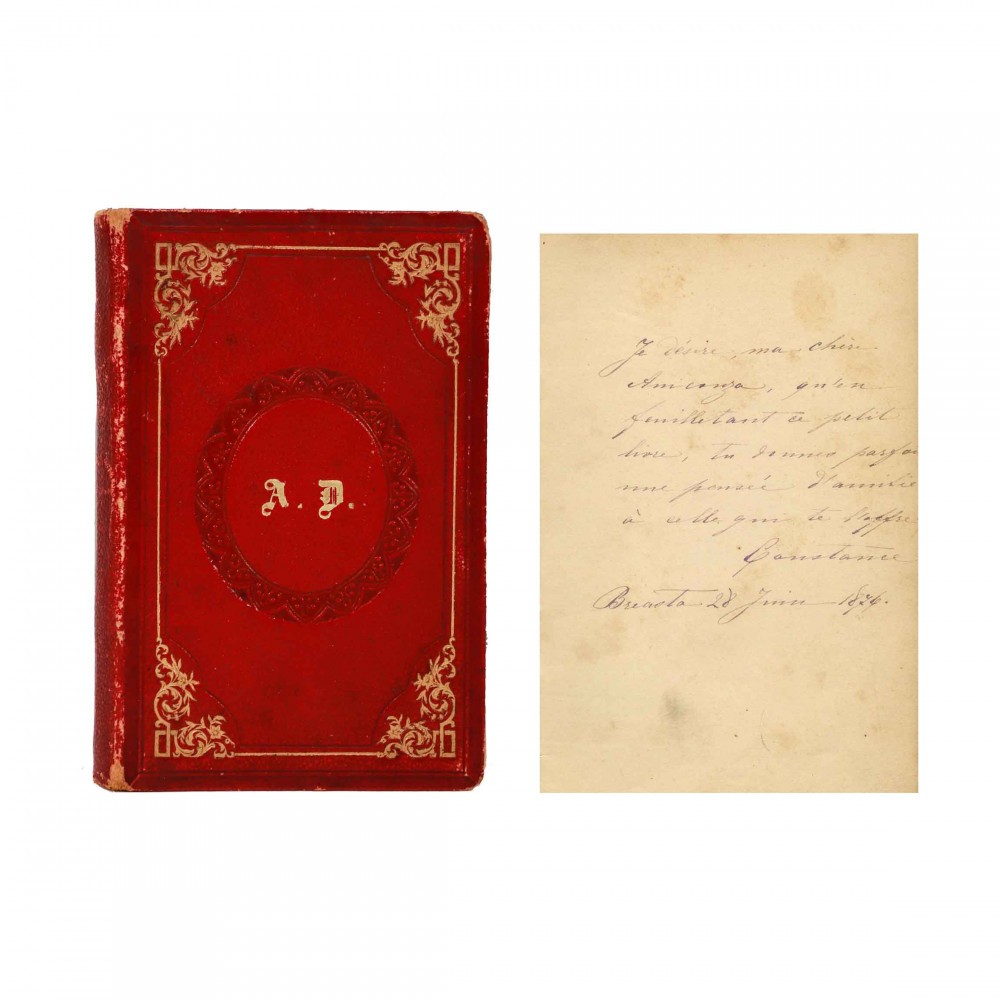 A. D.
Je désire, ma chère
Amicenza, qu'en
feuilletant ce petit
livre, tu donnes parfoi
une pensée d'amitié
à celle qui te l'offre
Constance
28 Juin 1879.